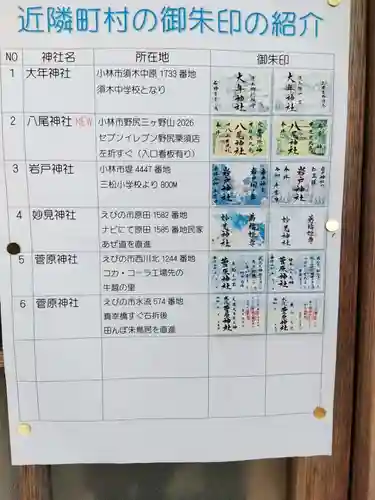 近隣町村の御朱印の紹介
NO 神社名 所在地 御朱印
1 大年神社 小林市須木中原 1733 番地
須木中学校となり
2 八尾神社 NEW 小林市野尻三ヶ野山 2026
セブンイレブン野尻栗須店
左折すぐ(入口看板有り)
3 岩戸神社 小林市堤 4447 番地
三松小学校より 800M
4 妙見神社 えびの市原田 1582 番地
ナビにて原田 1585 番地民家
あぜ道を直進
5 菅原神社 えびの市西川北 1244 番地
コカ・コーラ工場先の
牛越の里
6 菅原神社 えびの市水流 574 番地
真幸橋すぐ右折後
田んぼ朱鳥居を直進
大年神社 大年神社
八尾神社 八尾神社
岩戸神社 岩戸神社
妙見神社 妙見神社
菅原神社 菅原神社
菅原神社 菅原神社